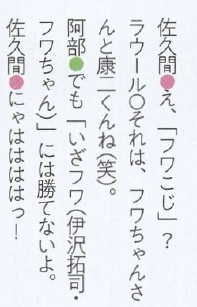 佐久間●え、「フワこじ」?
ラウール○それは、フワちゃんさ
んと康二くんね(笑)。
阿部●でも「いざフワ(伊沢拓司・
フワちゃん)」には勝てないよ。
佐久間●にゃはははっ!